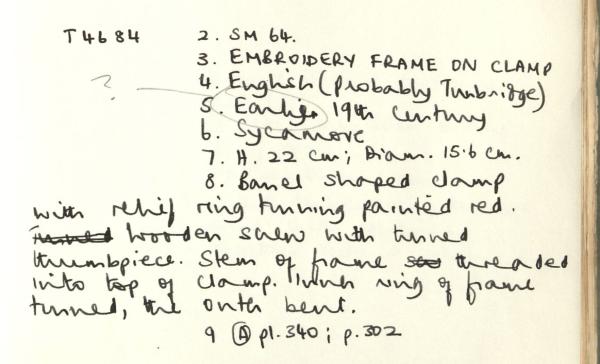 T4684 2. SM 64.
3. EMBROIDERY FRAME ON CLAMP
4. English (probably Tunbridge)
? 5. Earlier 19th century
6. Sycamore
7. H. 22 cm; Diam. 15.6 cm.
8. Barrel shaped clamp
with relief ring turning painted red.
Turned wooden screw with turned
thumbpiece. Stem of frame threaded
into top of clamp. Inner ring of frame
turned, the outer bent.
9 Ⓐ pl. 340; p. 302